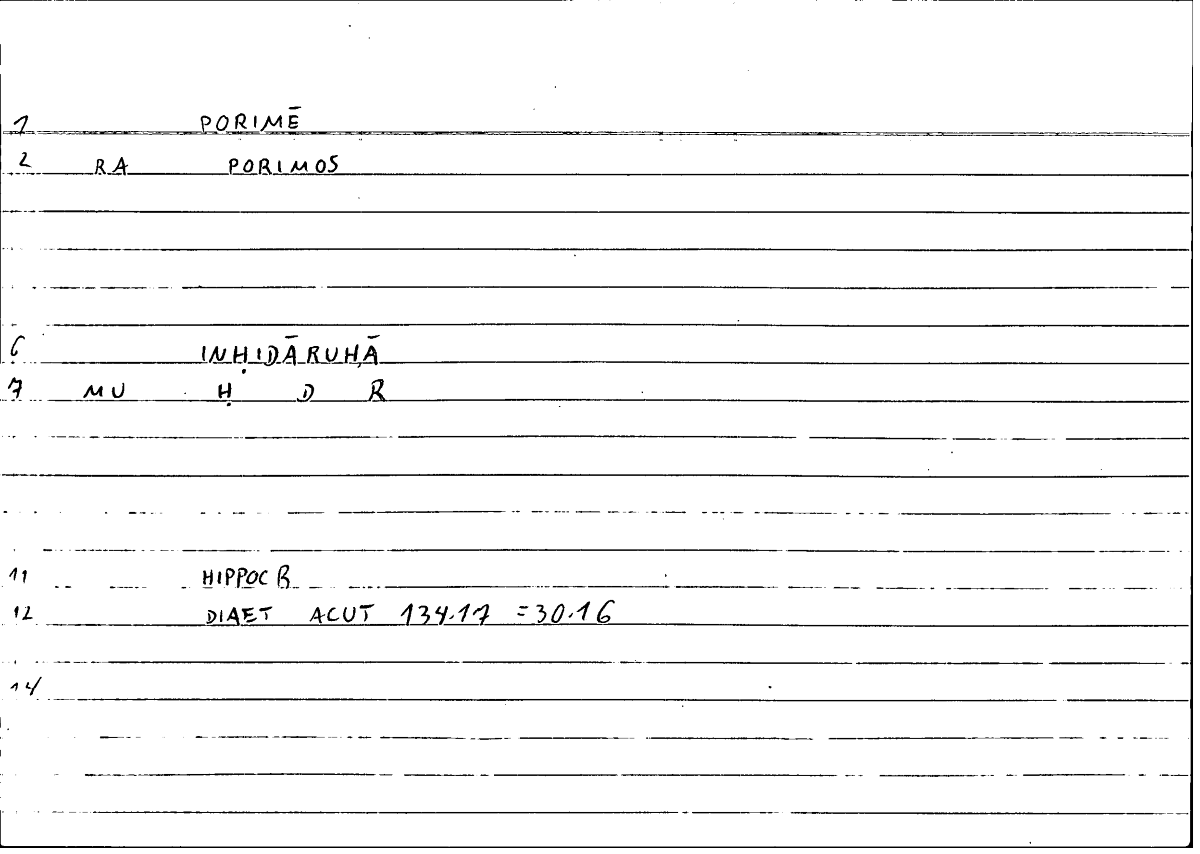 1 PORIMĒ
2 RA PORIMOS
6 INḤIDĀRUHĀ
7 MU Ḥ D R
11 HIPPOCR
12 DIAET ACUT 134.17 =30.16
14